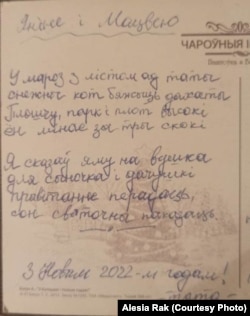 Яніне і Мацвею
ЧАРОЎНЫЯ
У мароз з лістом ад таты
снежны кот бяжыць дахаты
Плошчу, парк і плот высокі
ён мінае за тры скокі
Я сказаў яму на вушка
для сыночка і дачушкі
прывітанне перадаць,
сон святочны паказаць.
З Новым 2022-м годам!
тата
Alesia Rak (Courtesy Photo)